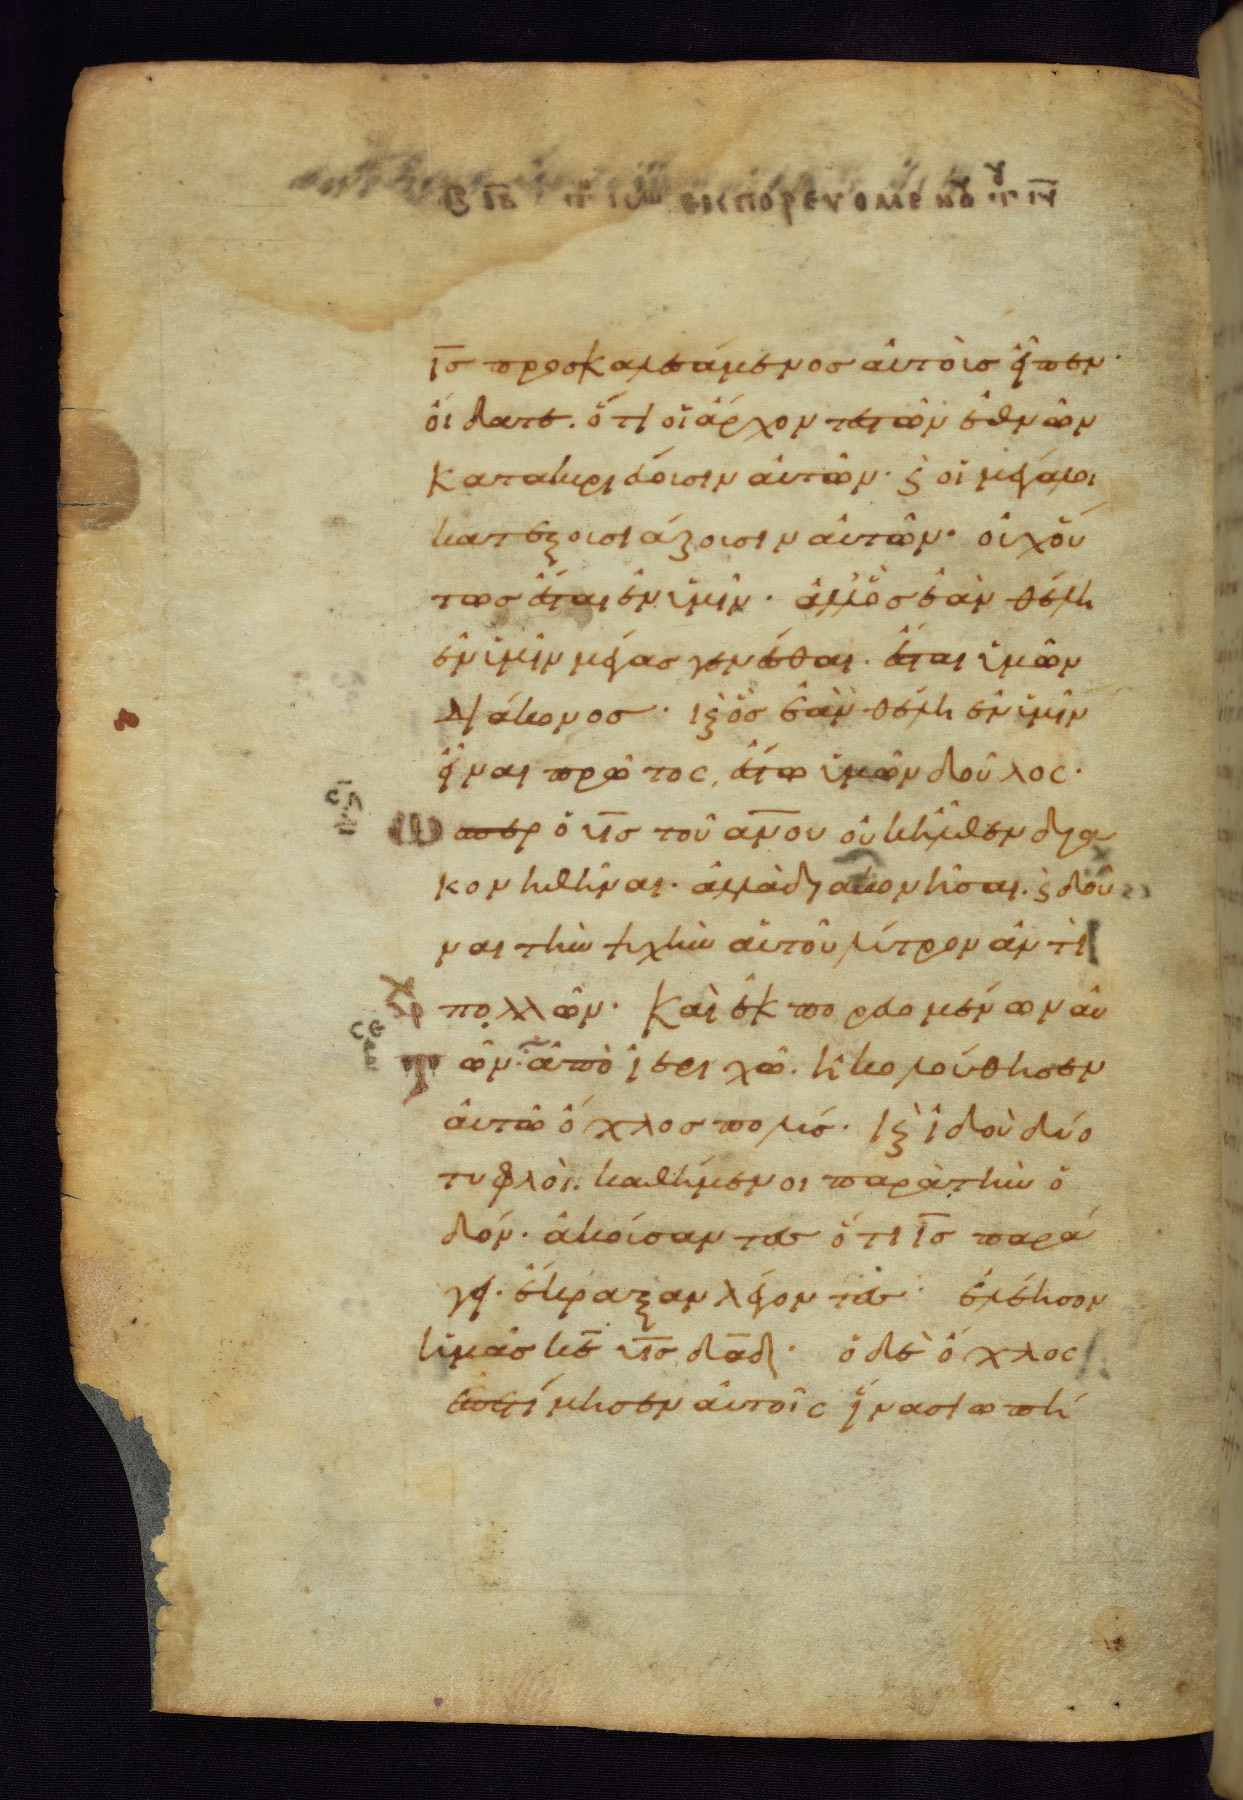 εκπορευομενου
ις προσκαλεσάμενος αὐτοὺς εἶπεν·
οἴδατε. ὅτι οἱ ἄρχοντες τῶν ἐθνῶν
κατακυριεύουσιν αὐτῶν· ϗ οἱ μεγάλοι
κατεξουσιάζουσιν αὐτῶν· οὐχ οὕ
τως ἔσται ἐν ὑμῖν· ἀλλ' ὃς ἐὰν θέλη
ἐν ὑμῖν μέγας γενέσθαι. ἔσται ὑμῶν
διάκονος· ϗ ὃς ἐὰν θέλη ἐν ὑμῖν
εἶναι πρῶτος, ἔστω ὑμῶν δοῦλος·
ὥσπερ ὁ υις τοῦ ανου οὐκ ἦλθεν δια
κονηθῆναι· ἀλλὰ διακονῆσαι. ϗ δοῦ
ναι τὴν ψυχὴν αὑτοῦ λύτρον ἀντὶ
πολλῶν· Καὶ ἐκπορευομένων αὐ
τῶν ἀπὸ ἱεριχῶ. ἠκολούθησεν
αὐτῶ ὄχλος πολύς· ϗ ἰδοὺ δύο
τυφλοὶ. καθήμενοι παρὰ τὴν ὁ
δόν· ἀκούσαντες ὅτι ις παρά
γει. ἔκραξαν λέγοντες· ἐλέησον
ἡμᾶς κε υις δαδ· ὁ δὲ ὄχλος
ἐπετίμησεν αὐτοῖς ἵνα σιωπή